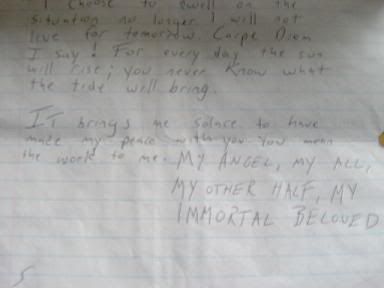 I choose to dwell on the
situation no longer. I will not
live for tomorrow. Carpe Diem
I say! For every day the sun
will rise; you never know what
the tide will bring.
IT brings me solace to have
made my peace with you. You mean
the work to me. MY ANGEL, MY ALL,
MY OTHER HALF, MY
IMMORTAL BELOVED